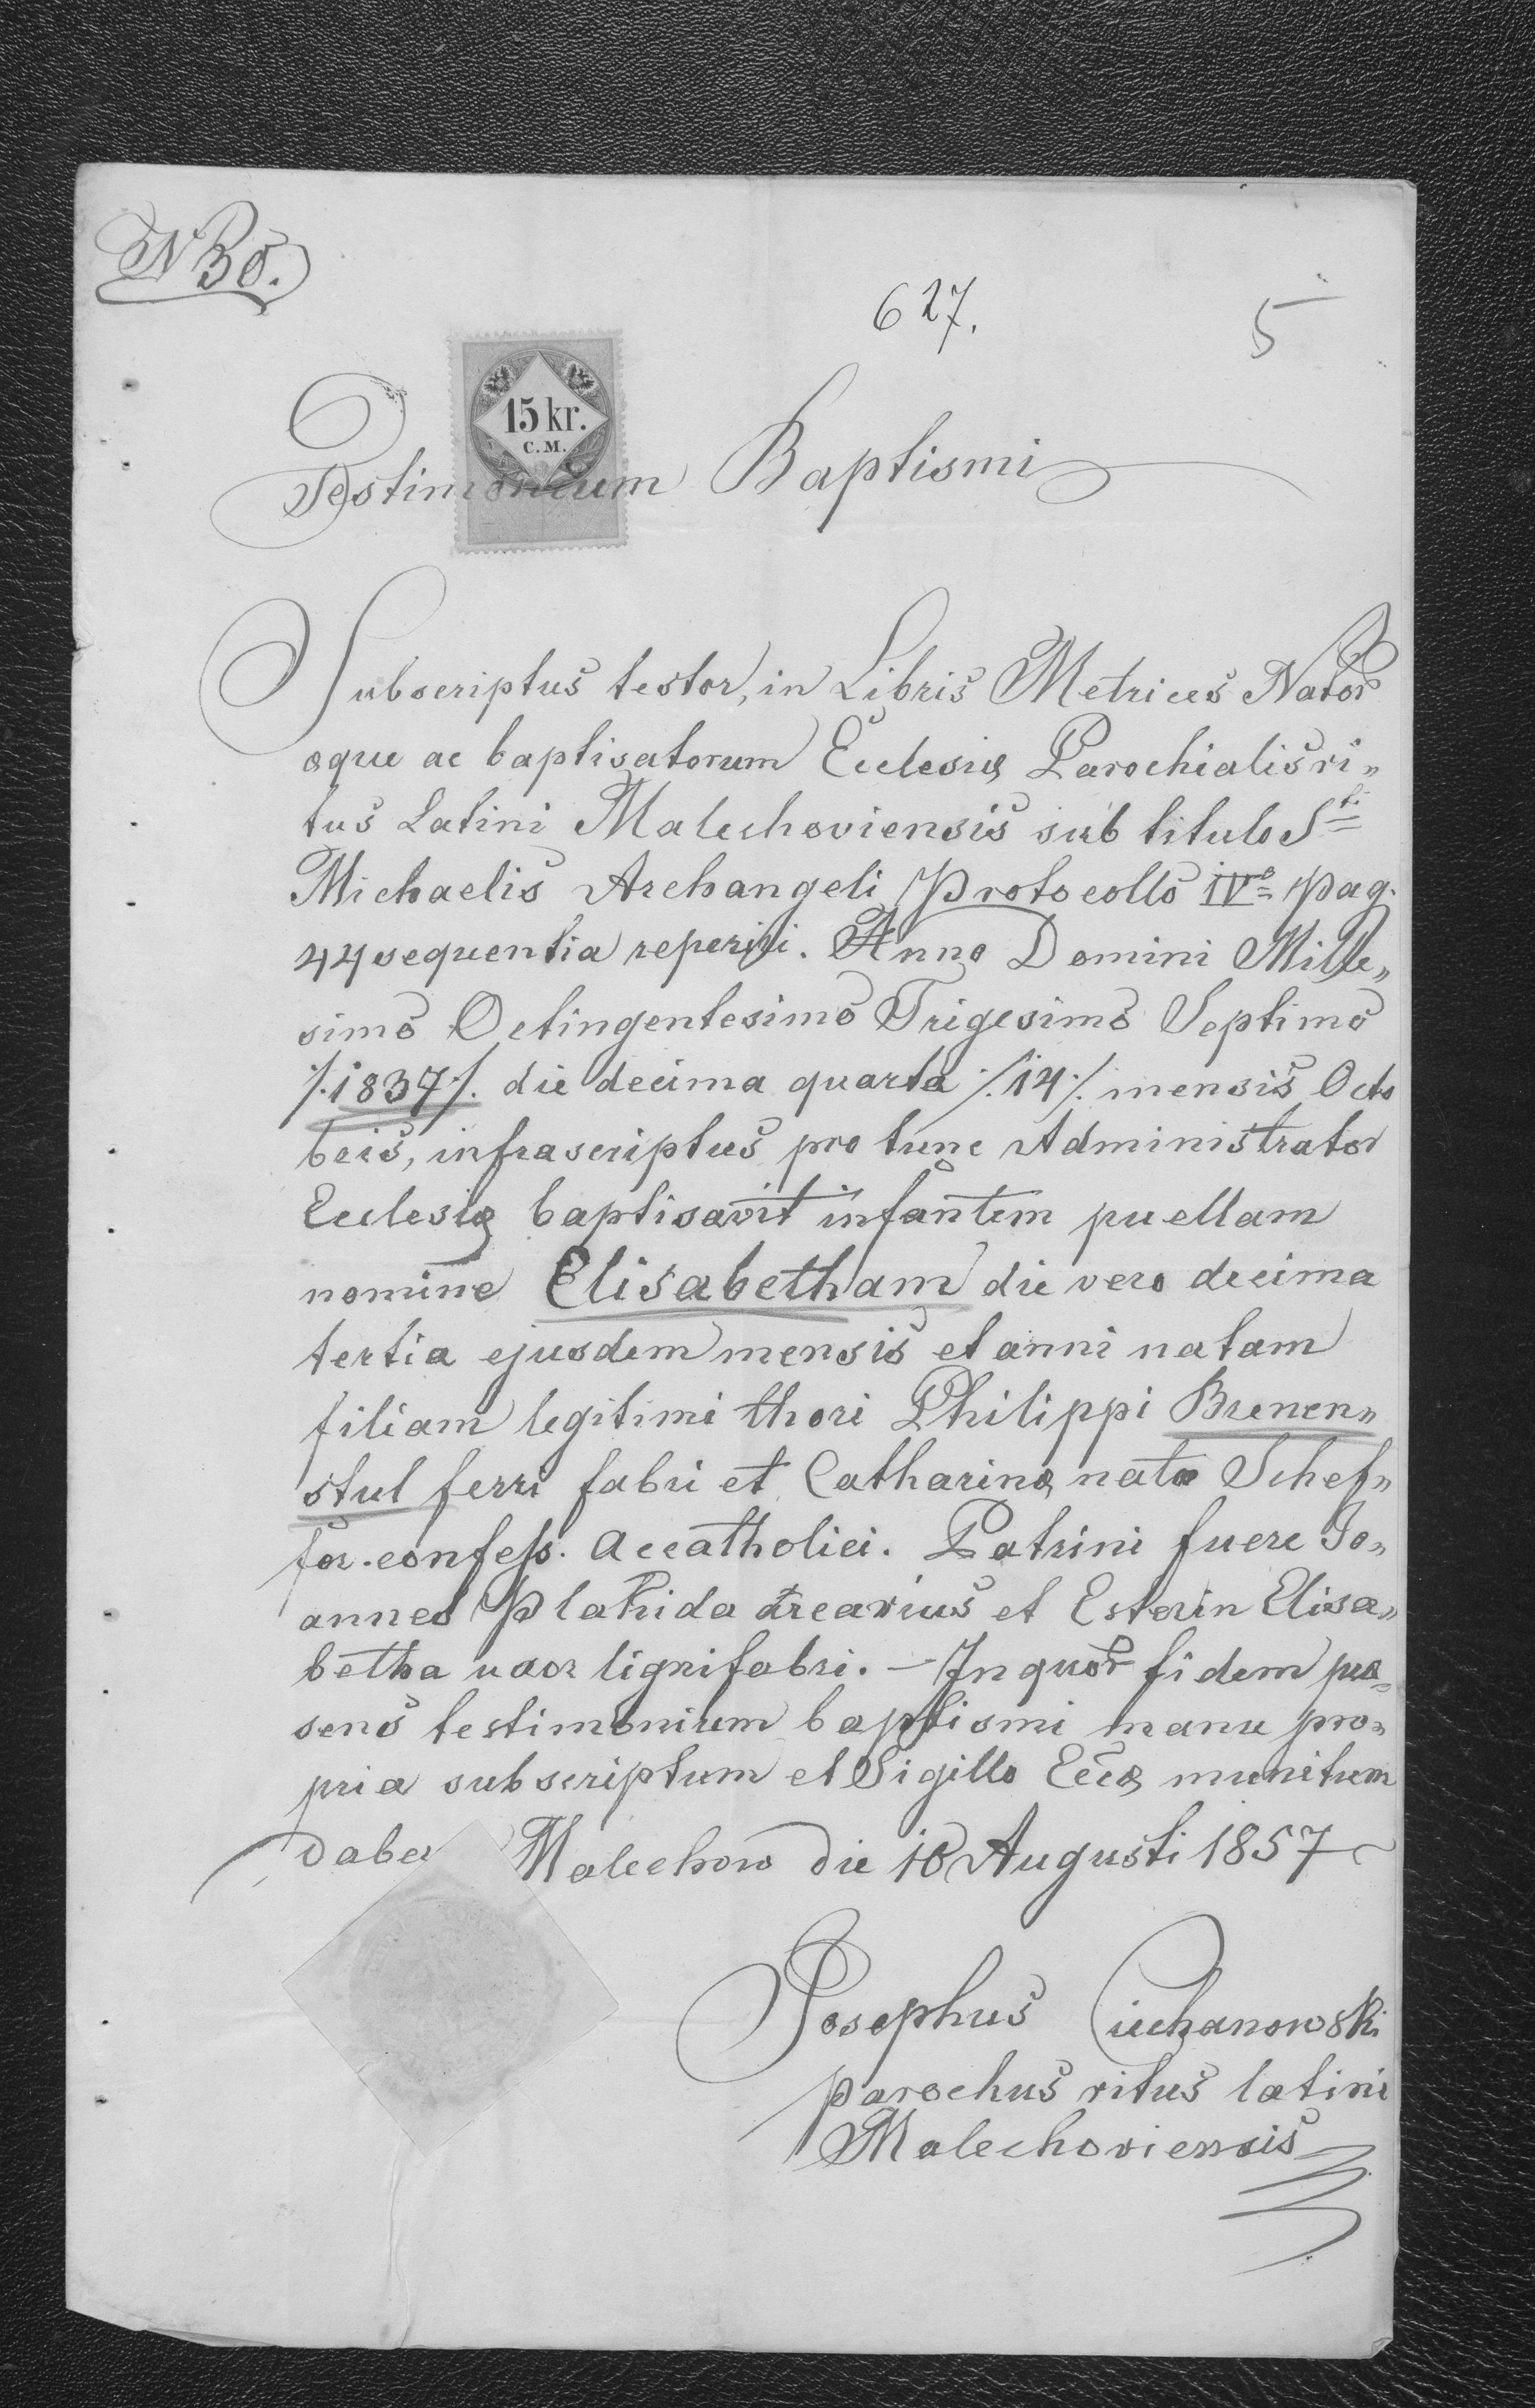 N 30.
627.
5
15 kr.
C.M.
Testimonium Baptismi
Subscriptus testor, in Libris Metrices Nator
oque ac baptisatorum Ecclesię Parochialis ri„
tus Latini Malechoviensis sub titulo Sti
Michaelis Archangeli Protocollo IVo pag.
44 sequentia reperiri. Anno Domini Mille„
simo Octingentesimo Trigesimo Septimo
/.1837/. die decima quarta /.14/. mensis Octo
bris, infrascriptus pro tunc Administrator
Ecclesię baptisavit infantem puellam
nomine Elisabetham die vero decima
tertia ejusdem mensis et anni natam
filiam legitimi thori Philippi Brenen„
stul ferri fabri et Catharinę nata Schef„
fer. confess. accatholici. Patrini fuere Jo„
annes Plakida arearius et Esterin Elisa„
betha uxor lignifabri. — In quor fidem prę
sens testimonium baptismi manu pro„
pria subscriptum et Sigillo Eccę munitum
Malechow die 10 Augusti 1857
Josephus Ciechanowski
parochus ritus latini
Malechoviensis